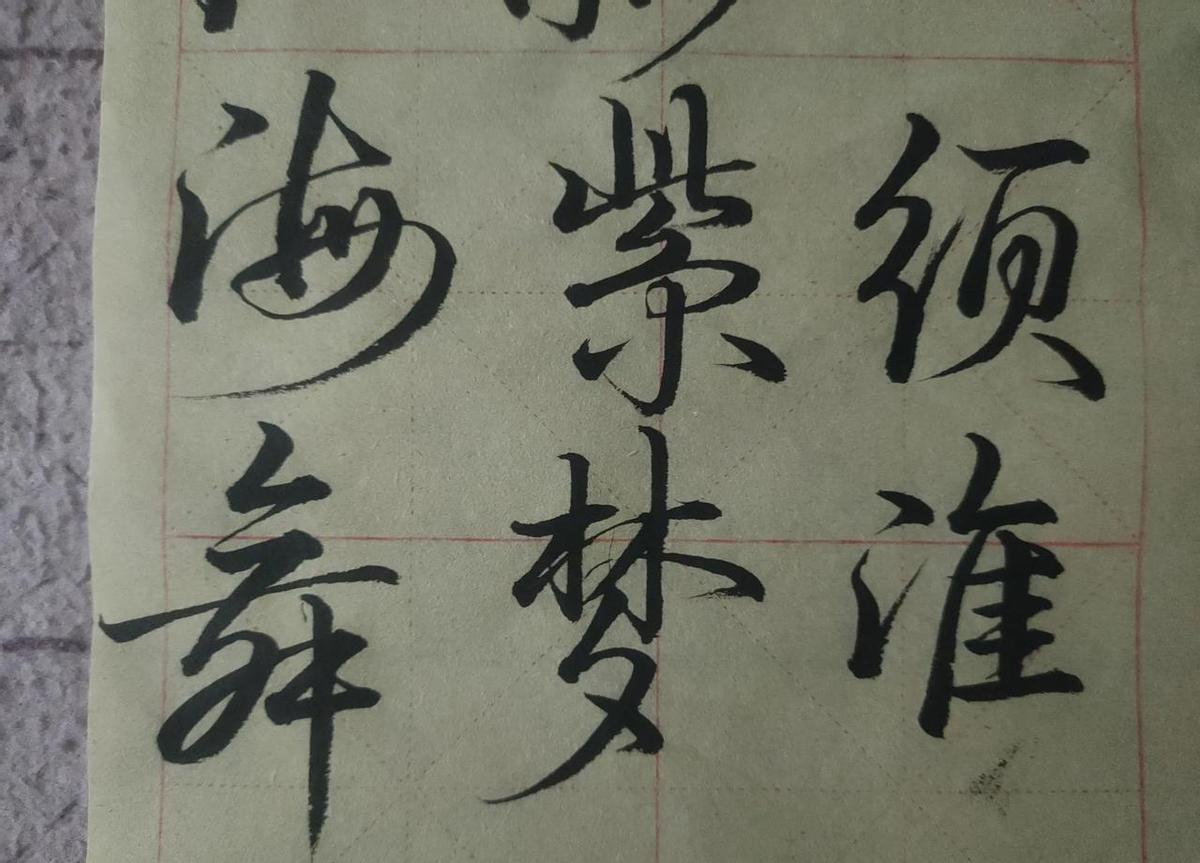 须淮
紫梦
海舞